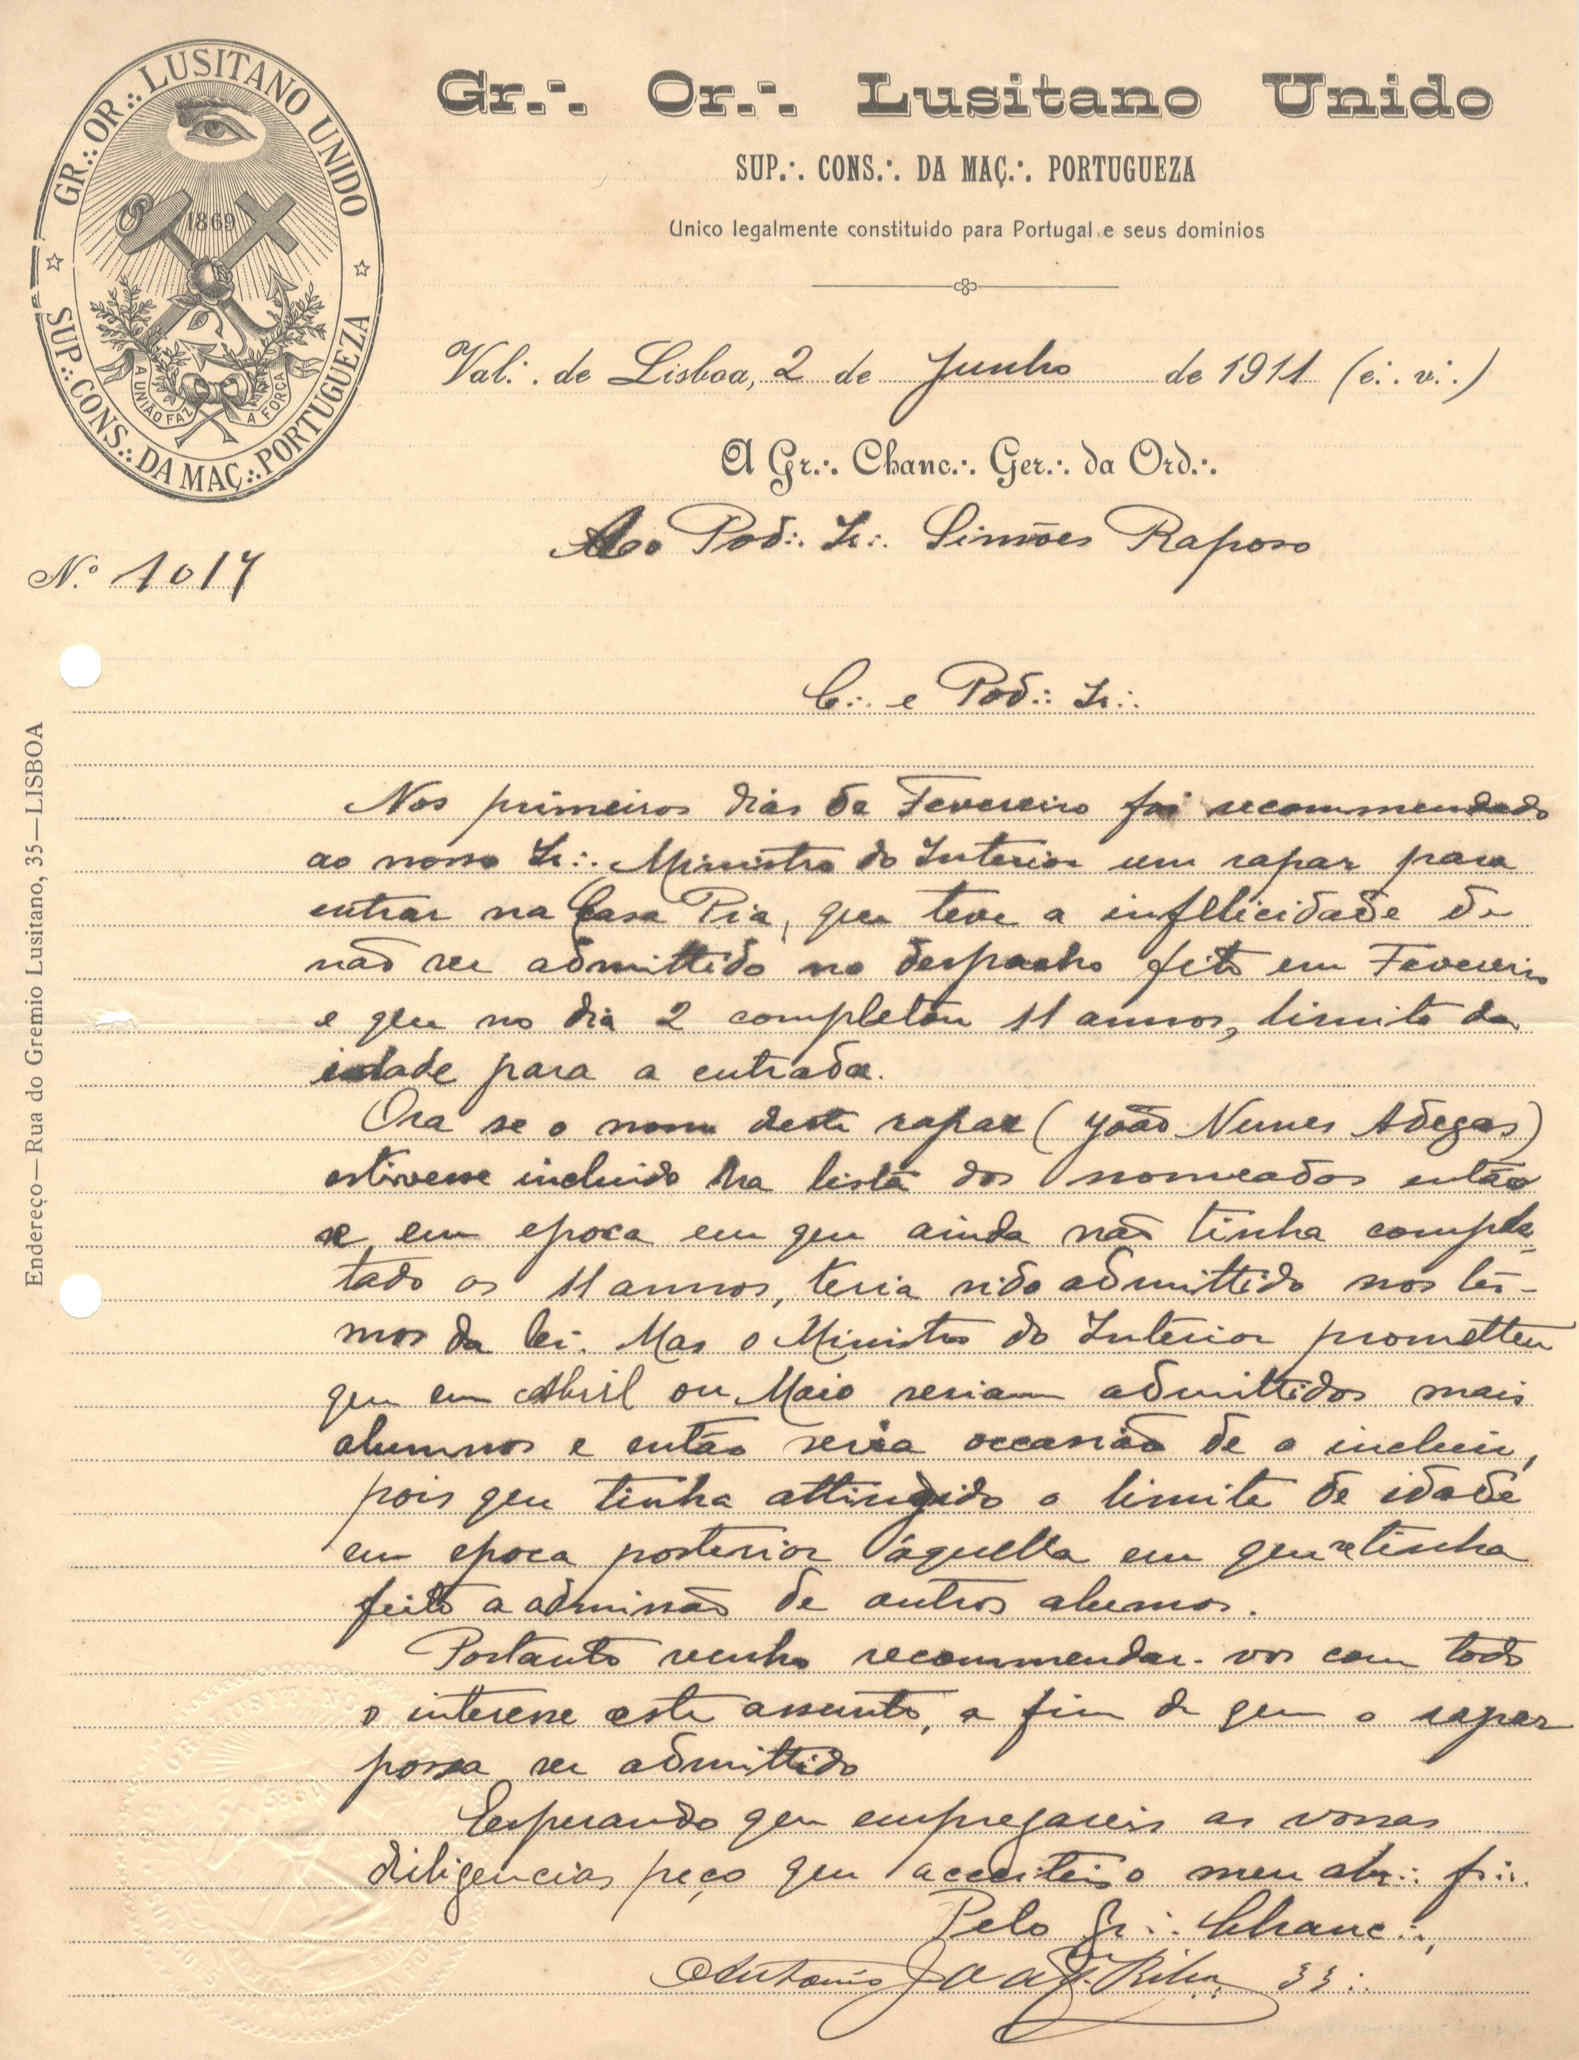 GR.·. OR.·. LUSITANO UNIDO
SUP.·. CONS.·. DA MAÇ.·. PORTUGUEZA
1869
A UNIÃO FAZ A FORÇA
Gr.·. Or.·. Lusitano Unido
SUP.·. CONS.·. DA MAÇ.·. PORTUGUEZA
Unico legalmente constituido para Portugal e seus dominios
Val.·. de Lisboa, 2 de Junho de 1911 (e.·. v.·.)
A Gr.·. Chanc.·. Ger.·. da Ord.·.
Ao Pod.·. Ir.·. Simões Raposo
N.º 1017
Endereço—Rua do Gremio Lusitano, 35—LISBOA
C.·. e Pod.·. Ir.·.
Nos primeiros dias de Fevereiro foi recommendado
ao nosso Ir.·. Ministro do Interior um rapaz para
entrar na Casa Pia, que teve a infelicidade de
não ser admittido no despacho feito em Fevereiro
e que no dia 2 completou 11 annos, limite da
idade para a entrada.
Ora se o nome deste rapaz (João Nunes Adegas)
estivesse incluido na lista dos nomeados então
e em epoca em que ainda não tinha comple-
tado os 11 annos, teria sido admittido nos ter-
mos da lei. Mas o Ministro do Interior prometteu
que em Abril ou Maio seriam admittidos mais
alumnos e então seria occasião de o incluir,
pois que tinha attingido o limite de idade
em epoca posterior áquella em que se tinha
feito a admissão de outros alumnos.
Portanto venho recommendar-vos com todo
o interesse este assunto, a fim de que o rapaz
possa ser admittido
Esperando que empregareis as vossas
diligencias peço que acceiteis o meu abr.·. fr.·.
Pelo Gr.·. Chanc.·.,
Antonio 33.·.